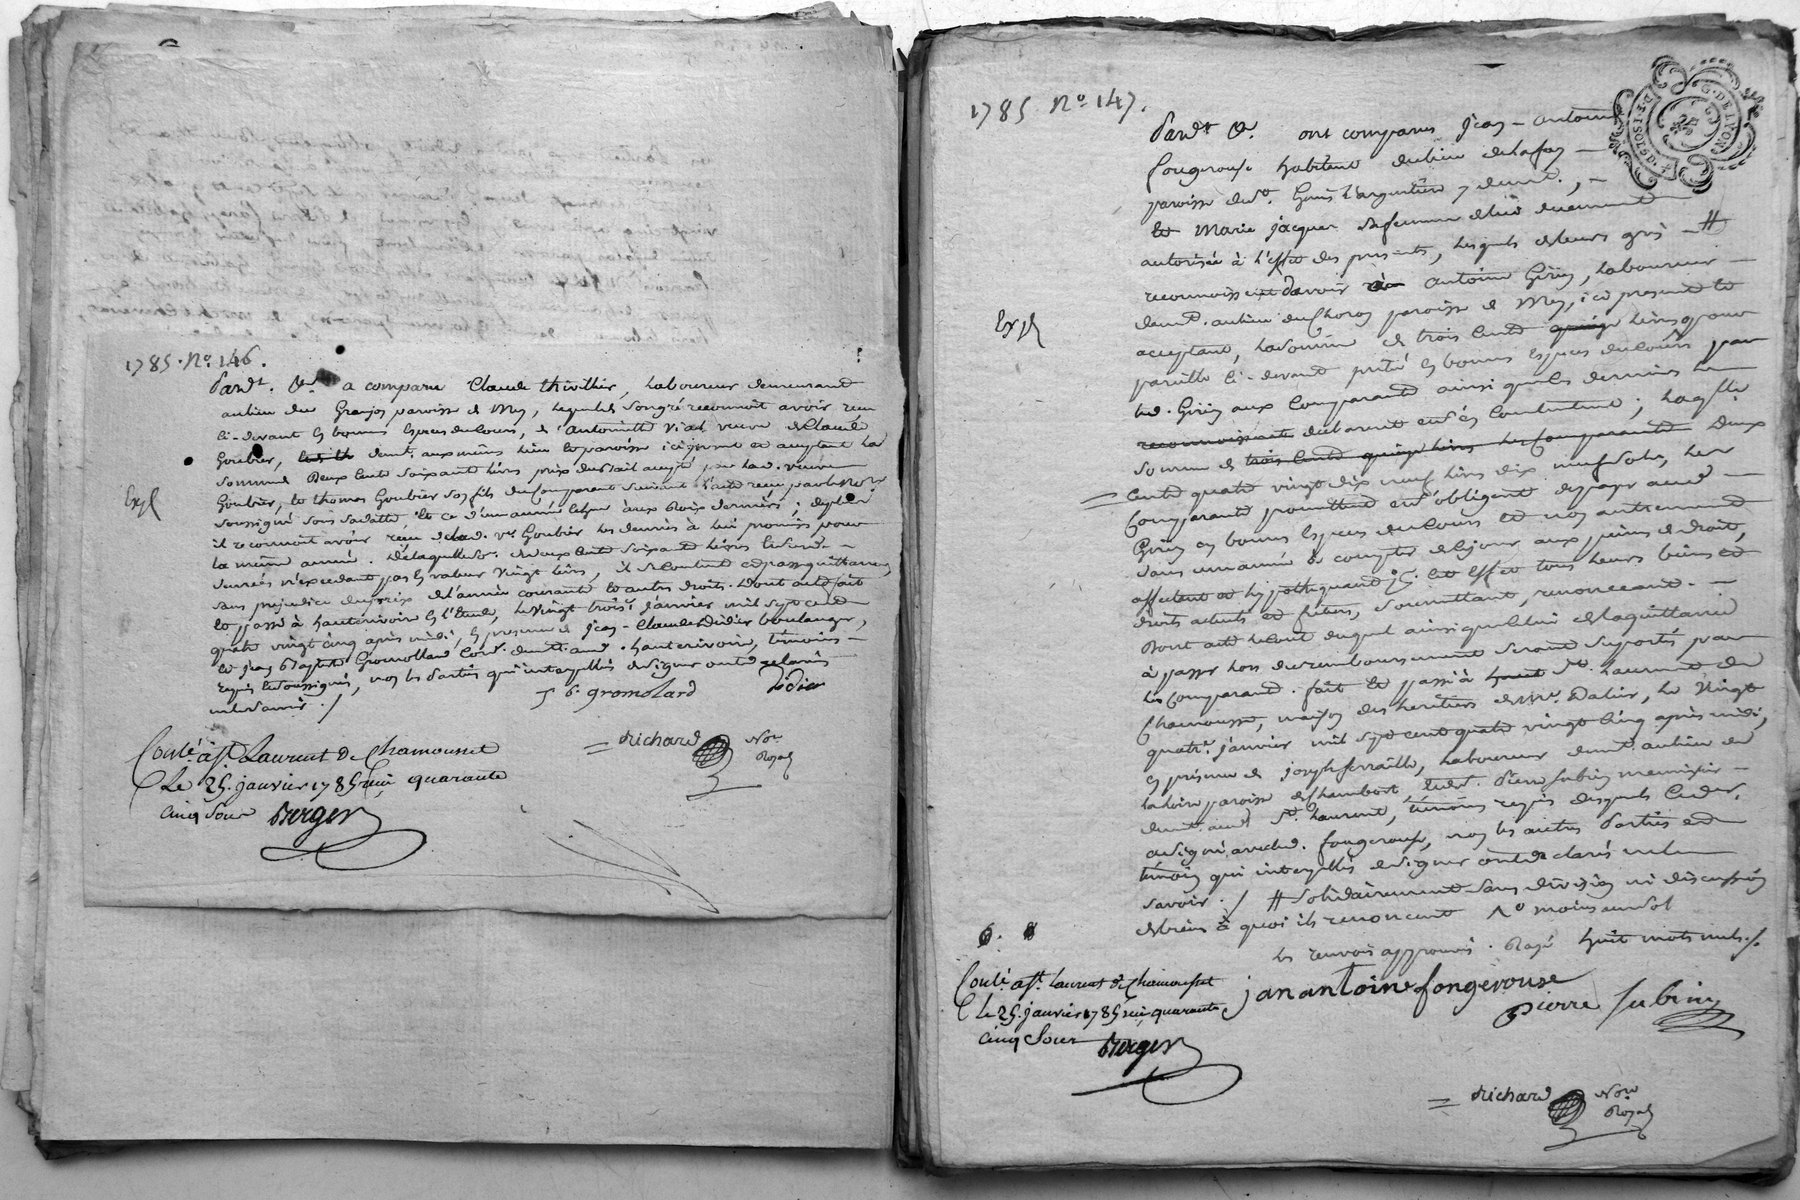 1785. No. 146.
Pardt. &a. a comparu Claude thivillier, laboureur demeurant
au lieu du Granjon paroisse de Mey, lequel de son gré reconnoit avoir reçu
ci-devant en bonnes Especes du Cours, d'antoinette vial veuve de Claude
Goubier, demt. aux mêmes lieu et paroisse ici present et acceptant la
somme Deux cents soixante livres prix du bail accepté par lad. veuve
Goubier, et thomas Goubier son fils du Comparant suivant l'acte recu par le Nore.
Expé
soussigné sous sa datte, Et ce d'une année echue aux Rois derniers; deplus
il reconnoit avoir reçu de lad. ve. Goubier les denrées à lui promises pour
la même année. De laquelle So. de deux cents soixante livres et desd.
denrées n'excedant pas la valeur Vingt livres, il se contente et passe quittance,
sans prejudice du prix de l'année courante et autres droits. Dont acte fait
et passé à hauterivoire en l'Etude, le vingt trois janvier mil sept cent
quatre vingt cinq après midi, en presence de Jean-Claude Didier boulanger,
et jean Baptiste Gromollard Cord. demt. aud. hauterivoire, témoins
requis et soussignés, non les Parties qui interpellées de signer ont declaré
ne le savoir ./
J b. gromolard Didier
= Richard Nore. Royal
Conlé. à St. Laurent De Chamousset
Le 25. janvier 1785 reçu quarante
cinq Sous Berger
1785. No. 147.
Pardt. &a. ont comparus Jean-antoine
fougerouse habitant du lieu de lafay
paroisse de St. Genis l'argentiere y demt.,
et Marie jacquet sa femme de lui duement
autorisée à l'effet des presentes, lesquels de leurs grés #
reconnoissent devoir à antoine Giriez, laboureur
demt. au lieu du Choron paroisse de Mey, ici present et
Expé
acceptant, la somme de trois cents quinze livres pour
pareille ci-devant prêté en bonnes Especes du Cours par
led. Giriez aux Comparants ainsi que ces derniers le
reconnoissent declarent et s'en contentent; laqlle.
somme de trois cents quinze livres les Comparants Deux
cents quatre vingt dix neuf livres dix neuf sols, les
Comparants promettent et s'obligent de payer aud.
Giriez en bonnes Especes du Cours et non autrement
dans une année à compter de ce jour aux peines de droit,
affectent et hypothequent pr. cet Effet tous leurs biens et
droits actuels et futurs, soumettant, renonceant.
Dont acte le cout duquel ainsi que celui de la quittance
à passer lors du remboursement seront suportés par
les Comparants. fait et passé à haut St. Laurent de
Chamousset, maison des heritiers de Mre. Dalier, le Vingt
quatre. janvier mil sept cent quatre vingt cinq après midi,
en présence de joseph ferraille, laboureur demt. au lieu de
la loire paroisse de Chambost, et de sr. Pierre subin menuisier
demt. aud. St. Laurent, témoins requis desquels ce der.
a signé avec led. fougerouse, non les autres Parties et
témoin qui interpellés de signer ont declarés ne le
savoir ./ # solidairement sans division ni discussion
de biens à quoi ils renoncent No moins un sol
les renvois approuvés. Rayé huit mots nuls ./
6. 8
jan antoine fongerouse
pierre subin
Conlé. a St. Laurent de Chamousset
Le 25. janvier 1785 reçu quarante
cinq Sous Berger
= Richard Nore. Royal
G. DE LYON